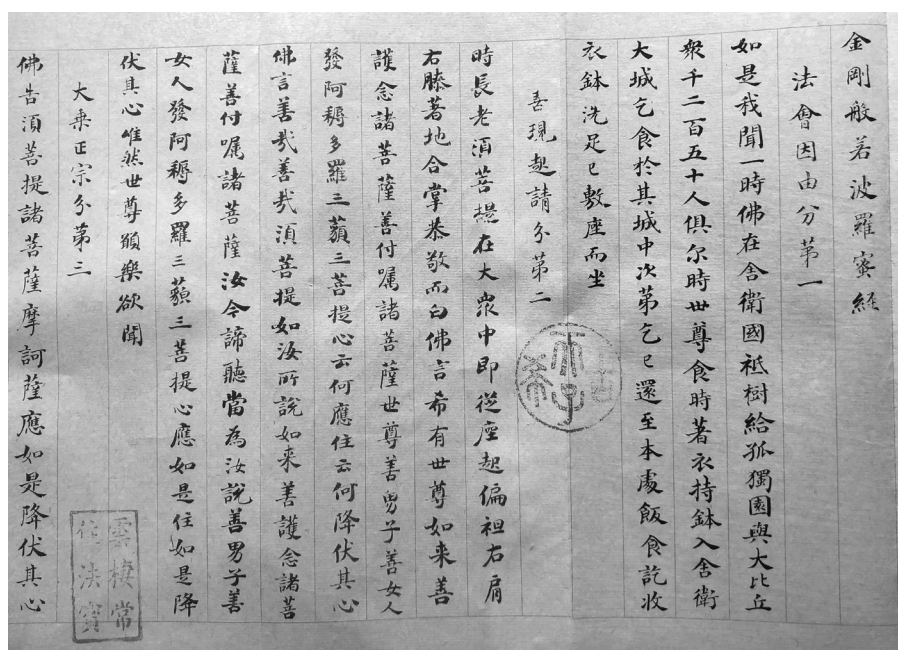 金剛般若波羅蜜經
法會因由分第一
如是我聞一時佛在舍衛國祗樹給孤獨園與大比丘
衆千二百五十人俱尔時世尊食時著衣持鉢入舍衛
大城乞食於其城中次第乞已還至本處飯食訖收
衣鉢洗足已敷座而坐
善現起請分第二
時長老湏菩提在大衆中即從座起偏袒右肩
右膝著地合掌恭敬而白佛言希有世尊如来善
護念諸菩薩善付嘱諸菩薩世尊善男子善女人
發阿耨多羅三藐三菩提心云何應住云何降伏其心
佛言善哉善哉湏菩提如汝所說如来善護念諸菩
薩善付嘱諸菩薩汝今諦聽當為汝說善男子善
女人發阿耨多羅三藐三菩提心應如是住如是降
伏其心唯然世尊願樂欲聞
大乗正宗分第三
佛告湏菩提諸菩薩摩訶薩應如是降伏其心
雲棲常
住法寶